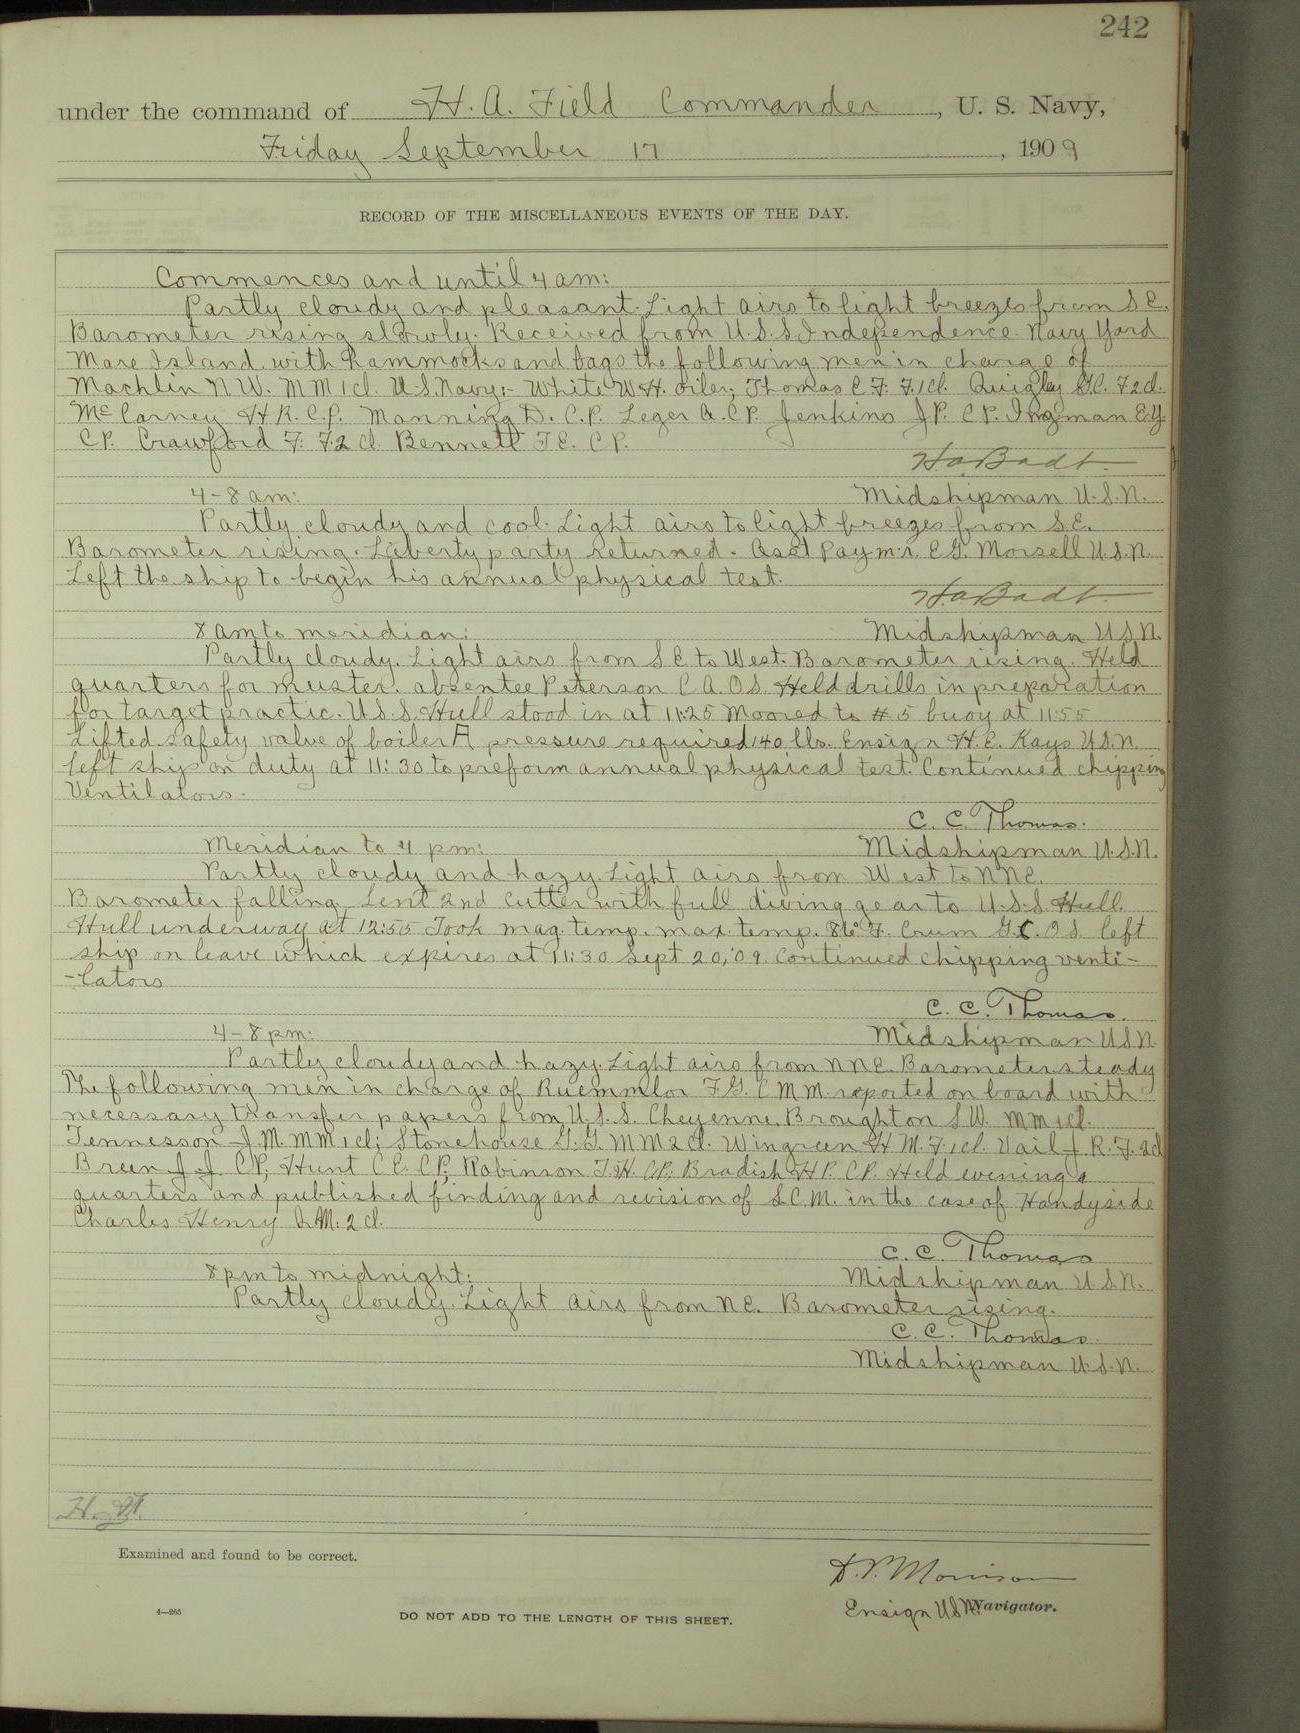 242
under the command of H. A. Field Commander, U. S. Navy,
Friday September 17, 1909
RECORD OF THE MISCELLANEOUS EVENTS OF THE DAY.
Commences and until 4 am:
Partly cloudy and pleasant. Light airs to light breezes from S E.
Barometer rising slowly. Received from U.S.S Independence Navy Yard
Mare Island with hammocks and bags the following men in charge of
Machlin N W. M M 1cl. U.S. Navy:- White W H. oiler; Thomas C F. F. 1cl. Quigley G.C. F 2cl.
Mc Carney H R. C.P. Manning D. C.P. Leger A. C P. Jenkins J P. C P. Ingman E Y.
C P. Crawford F. F 2 cl. Bennett F E. C P.
H.a. Badt.
4-8 am:
Midshipman U.S.N.
Partly cloudy and cool. Light airs to light breezes from S.E.
Barometer rising. Liberty party returned. Asst Paym'r. E G. Morsell U S.N.
Left the ship to begin his annual physical test.
H.a. Badt
8 am to meridian:
Midshipman U.S.N.
Partly cloudy. Light airs from S E to West. Barometer rising. Held
quarters for muster. absentee Peterson C A. O S. Held drills in preparation
for target practic. U S. S. Hull stood in at 11:25 Moored to # 5 buoy at 11:55
Lifted safety valve of boiler A pressure required 140 lbs. Ensign H. E. Kays U.S.N.
left ship on duty at 11:30 to preform annual physical test. Continued chipping
Ventilators.
C. C. Thomas.
Meridian to 4 pm:
Midshipman U.S.N.
Partly cloudy and hazy. Light airs from West to N N E.
Barometer falling. Sent 2nd Cutter with full diving gear to U.S.S. Hull.
Hull underway at 12:55 Took mag. temp. max. temp. 86° F. Crum G.C. O S. left
ship on leave which expires at 11:30 Sept 20, '09. Continued chipping venti-
-lators
C. C. Thomas.
4-8 pm:
Midshipman U.S.N.
Partly cloudy and hazy. Light airs from N N E. Barometer steady
The following men in charge of Ruemmlor F G. C M M reported on board with
necessary transfer papers from U.S.S. Cheyenne. Broughton S.W. M M 1cl.
Tennesson J. M. M M 1cl; Stonehouse G. G. M M 2cl. Wingreen H M. F. 1cl. Vail J. R. F. 2cl
Breen J J. C P; Hunt C E. C P; Robinson T. H. C.P; Bradish H P. C P. Held evening
quarters and published finding and revision of S.C.M. in the case of Handyside
Charles Henry M. 2 cl.
C. C. Thomas
8 pm to midnight:
Midshipman U.S.N.
Partly cloudy. Light airs from N E. Barometer rising.
C. C. Thomas.
Midshipman U.S.N.
Examined and found to be correct.
Morrison
Ensign U S N Navigator.
4—265
DO NOT ADD TO THE LENGTH OF THIS SHEET.